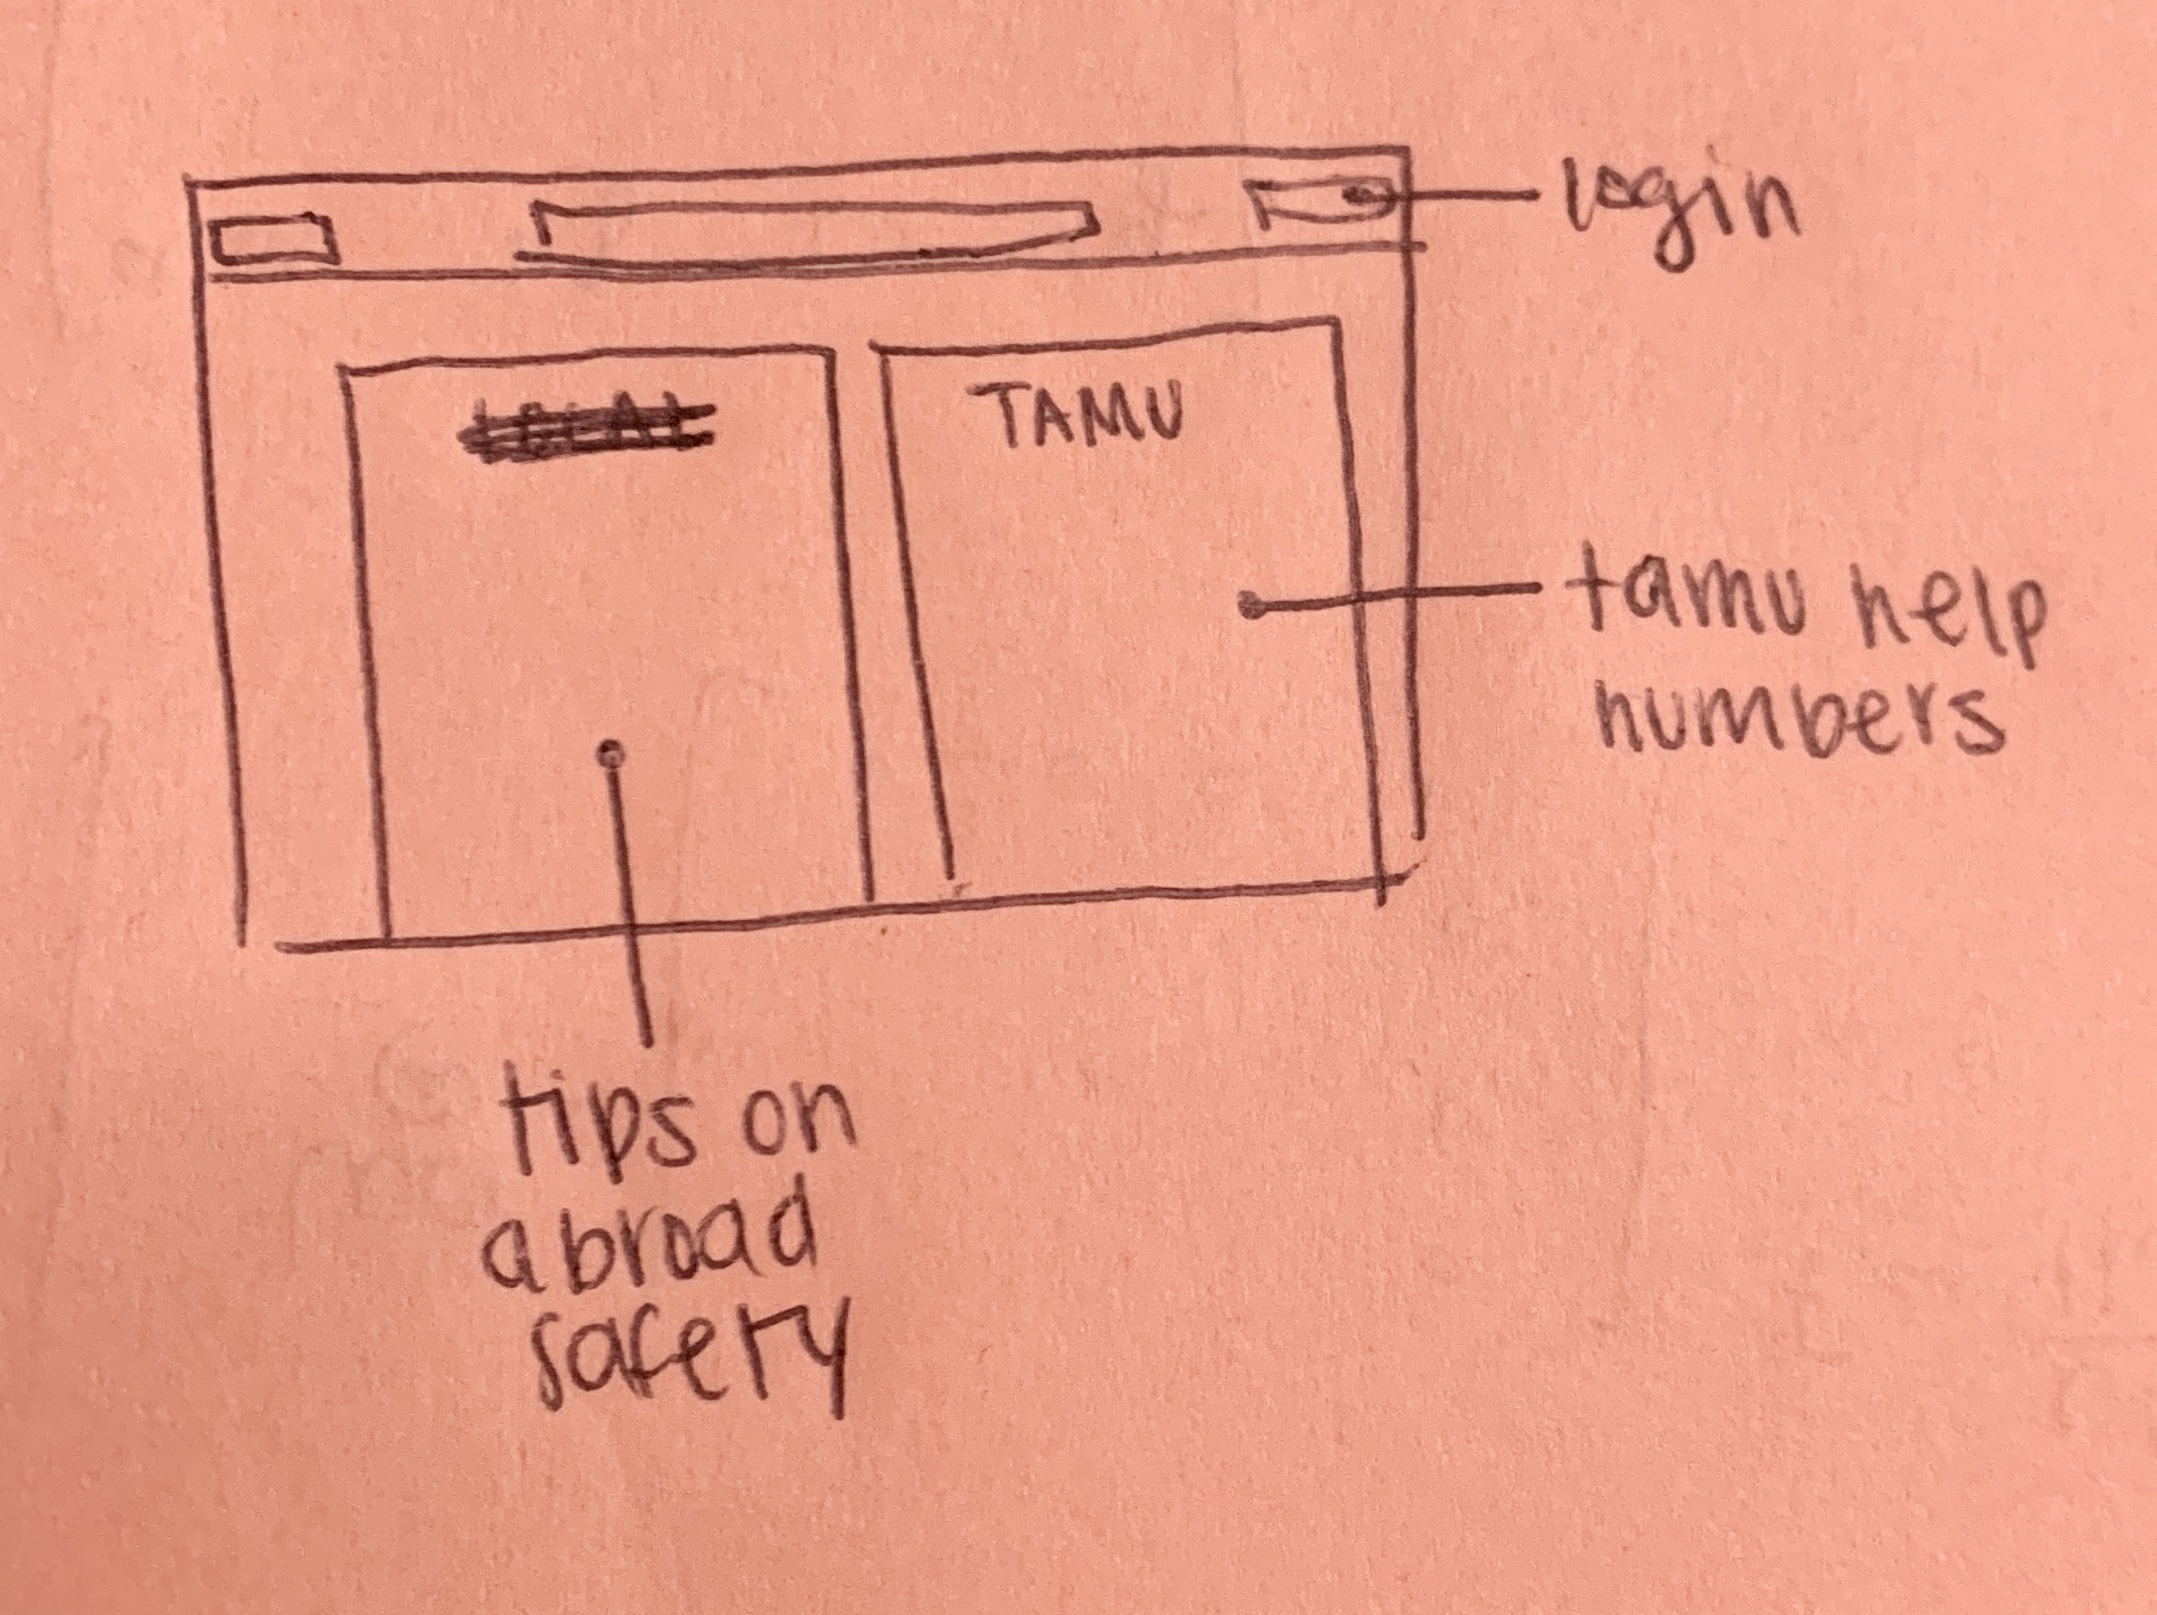 login
TAMU
tamu help
numbers
tips on
abroad
safety